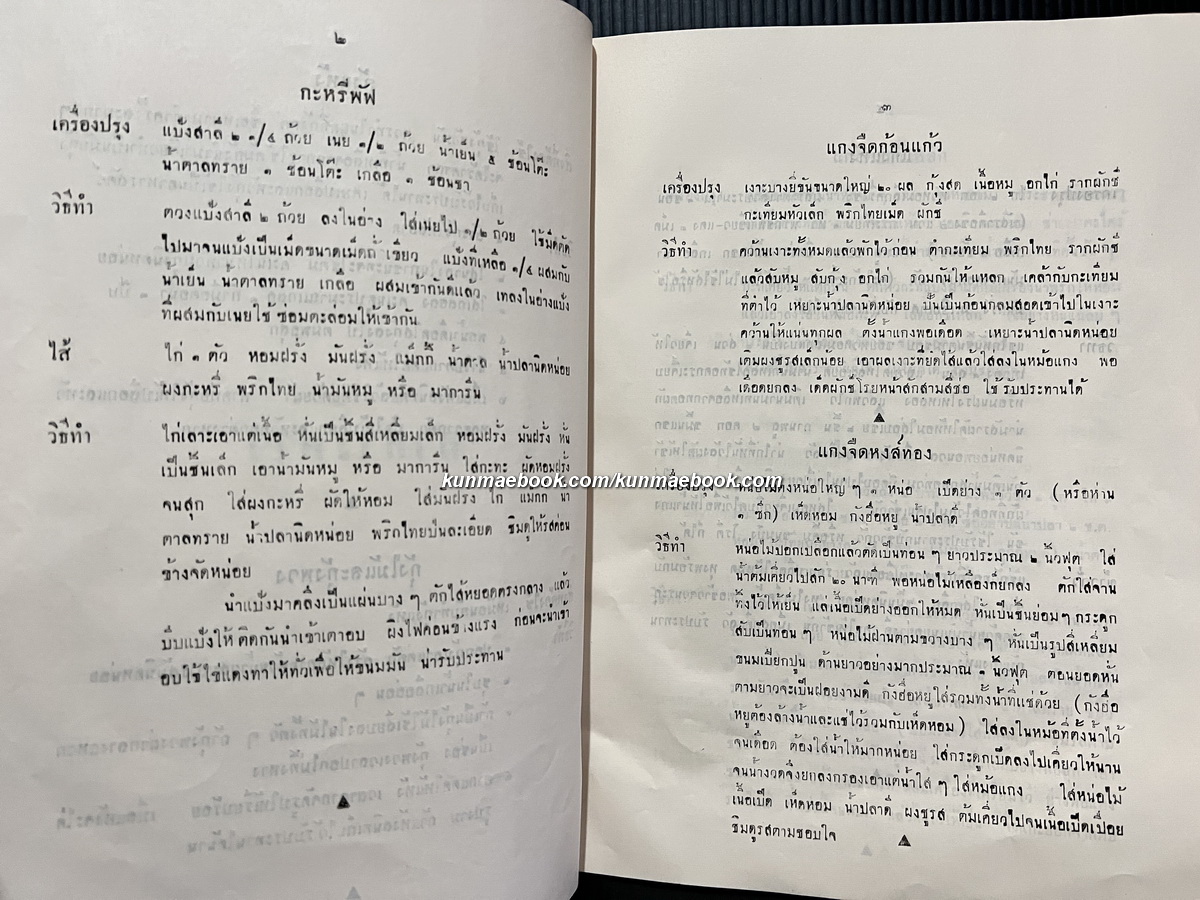 ๒
กะหรี่พัฟ
เครื่องปรุง แป้งสาลี ๒ ๑/๔ ถ้วย เนย ๑/๒ ถ้วย น้ำเย็น ๕ ช้อนโต๊ะ
น้ำตาลทราย ๑ ช้อนโต๊ะ เกลือ ๑ ช้อนชา
วิธีทำ ตวงแป้งสาลี ๒ ถ้วย ลงในอ่าง ใส่เนยไป ๑/๒ ถ้วย ใช้มีดตัด
ไปมาจนแป้งเป็นเม็ดขนาดเม็ดถั่วเขียว แป้งที่เหลือ ๑/๔ ผสมกับ
น้ำเย็น น้ำตาลทราย เกลือ ผสมเข้ากันดีแล้ว เทลงในอ่างแป้ง
ที่ผสมกับเนยใช้ซ่อมตะลอมให้เข้ากัน
ไส้ ไก่ ๑ ตัว หอมฝรั่ง มันฝรั่ง แม็กกี้ น้ำตาล น้ำปลานิดหน่อย
ผงกะหรี่ พริกไทย น้ำมันหมู หรือ มาการีน
วิธีทำ ไก่เลาะเอาแต่เนื้อ หั่นเป็นชิ้นสี่เหลี่ยมเล็ก หอมฝรั่ง มันฝรั่ง หั่น
เป็นชิ้นเล็ก เอาน้ำมันหมู หรือ มาการีน ใส่กะทะ ผัดหอมฝรั่ง
จนสุก ใส่ผงกะหรี่ ผัดให้หอม ใส่มันฝรั่ง ไก่ แม็กกี้ น้ำ
ตาลทราย น้ำปลานิดหน่อย พริกไทยป่นละเอียด ชิมดูให้รสค่อน
ข้างจัดหน่อย
นำแป้งมาคลึงเป็นแผ่นบาง ๆ ตักไส้หยอดตรงกลาง แล้ว
บีบแป้งให้ติดกันนำเข้าเตาอบ ผิงไฟค่อนข้างแรง ก่อนจะนำเข้า
อบใช้ไข่แดงทาให้ทั่วเพื่อให้ขนมมัน น่ารับประทาน
๓
แกงจืดก้อนแก้ว
เครื่องปรุง เงาะบางยี่ขันขนาดใหญ่ ๒๐ ผล กุ้งสด เนื้อหมู อกไก่ รากผักชี
กะเทียมหัวเล็ก พริกไทยเม็ด ผักชี
วิธีทำ คว้านเงาะทั้งหมดแล้วพักไว้ก่อน ตำกะเทียม พริกไทย รากผักชี
แล้วสับหมู สับกุ้ง อกไก่ รวมกันให้แหลก เคล้ากับกะเทียม
ที่ตำไว้ เหยาะน้ำปลานิดหน่อย ปั้นเป็นก้อนกลมสอดเข้าไปในเงาะ
คว้านให้แน่นทุกผล ตั้งน้ำแกงพอเดือด เหยาะน้ำปลานิดหน่อย
เติมผงชูรสเล็กน้อย เอาผลเงาะที่ยัดไส้แล้วใส่ลงในหม้อแกง พอ
เดือดยกลง เด็ดผักชีโรยหน้าสักสามสี่ช่อ ใช้รับประทานได้
แกงจืดหงส์ทอง
เครื่องปรุง หน่อไม้ตงหน่อใหญ่ ๆ ๑ หน่อ เป็ดย่าง ๑ ตัว (หรือห่าน
๑ ซีก) เห็ดหอม กังฮื่อหยู น้ำปลาดี
วิธีทำ หน่อไม้ปอกเปลือกแล้วตัดเป็นท่อน ๆ ยาวประมาณ ๒ นิ้วฟุต ใส่
น้ำต้มเคี่ยวไปสัก ๒๐ นาที พอหน่อไม้เหลืองก็ยกลง ตักใส่จาน
ทิ้งไว้ให้เย็น แล่เนื้อเป็ดย่างออกให้หมด หั่นเป็นชิ้นย่อมๆ กระดูก
สับเป็นท่อน ๆ หน่อไม้ฝานตามขวางบาง ๆ หั่นเป็นรูปสี่เหลี่ยม
ขนมเปียกปูน ด้านยาวอย่างมากประมาณ ๑ นิ้วฟุต ตอนยอดหั่น
ตามยาวจะเป็นฝอยงามดี กังฮื่อหยูใส่รวมทั้งน้ำที่แช่ด้วย (กังฮื่อ
หยูต้องล้างน้ำและแช่ไว้รวมกับเห็ดหอม) ใส่ลงในหม้อที่ตั้งน้ำไว้
จนเดือด ต้องใส่น้ำให้มากหน่อย ใส่กระดูกเป็ดลงไปเคี่ยวให้นาน
จนน้ำงวดจึงยกลงกรองเอาแต่น้ำใส ๆ ใส่หม้อแกง ใส่หน่อไม้
เนื้อเป็ด เห็ดหอม น้ำปลาดี ผงชูรส ต้มเคี่ยวไปจนเนื้อเป็ดเปื่อย
ชิมดูรสตามชอบใจ
kunmaebook.com/kunmaebook.com